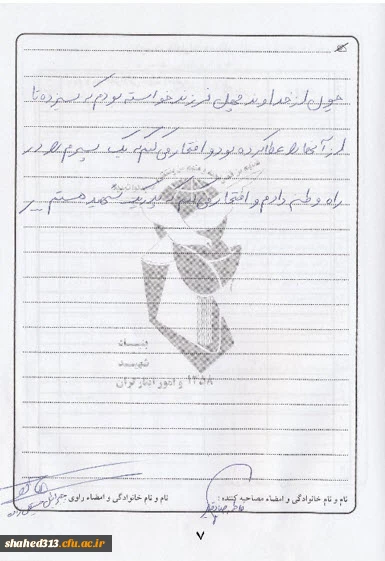 چون از خداوند چهل فرزند خواسته بودم که سیزده تا
از آنها را عطا کرده بود و افتخار می کنم که یک پسرم را در
راه وطن دادم و افتخار می کنم که پدر شهید هستم
بنیاد
شهید
و امور ایثارگران
۱۳۵۸
نام و نام خانوادگی و امضاء مصاحبه کننده :
نام و نام خانوادگی و امضاء راوی
۷
shahed313.cfu.ac.ir